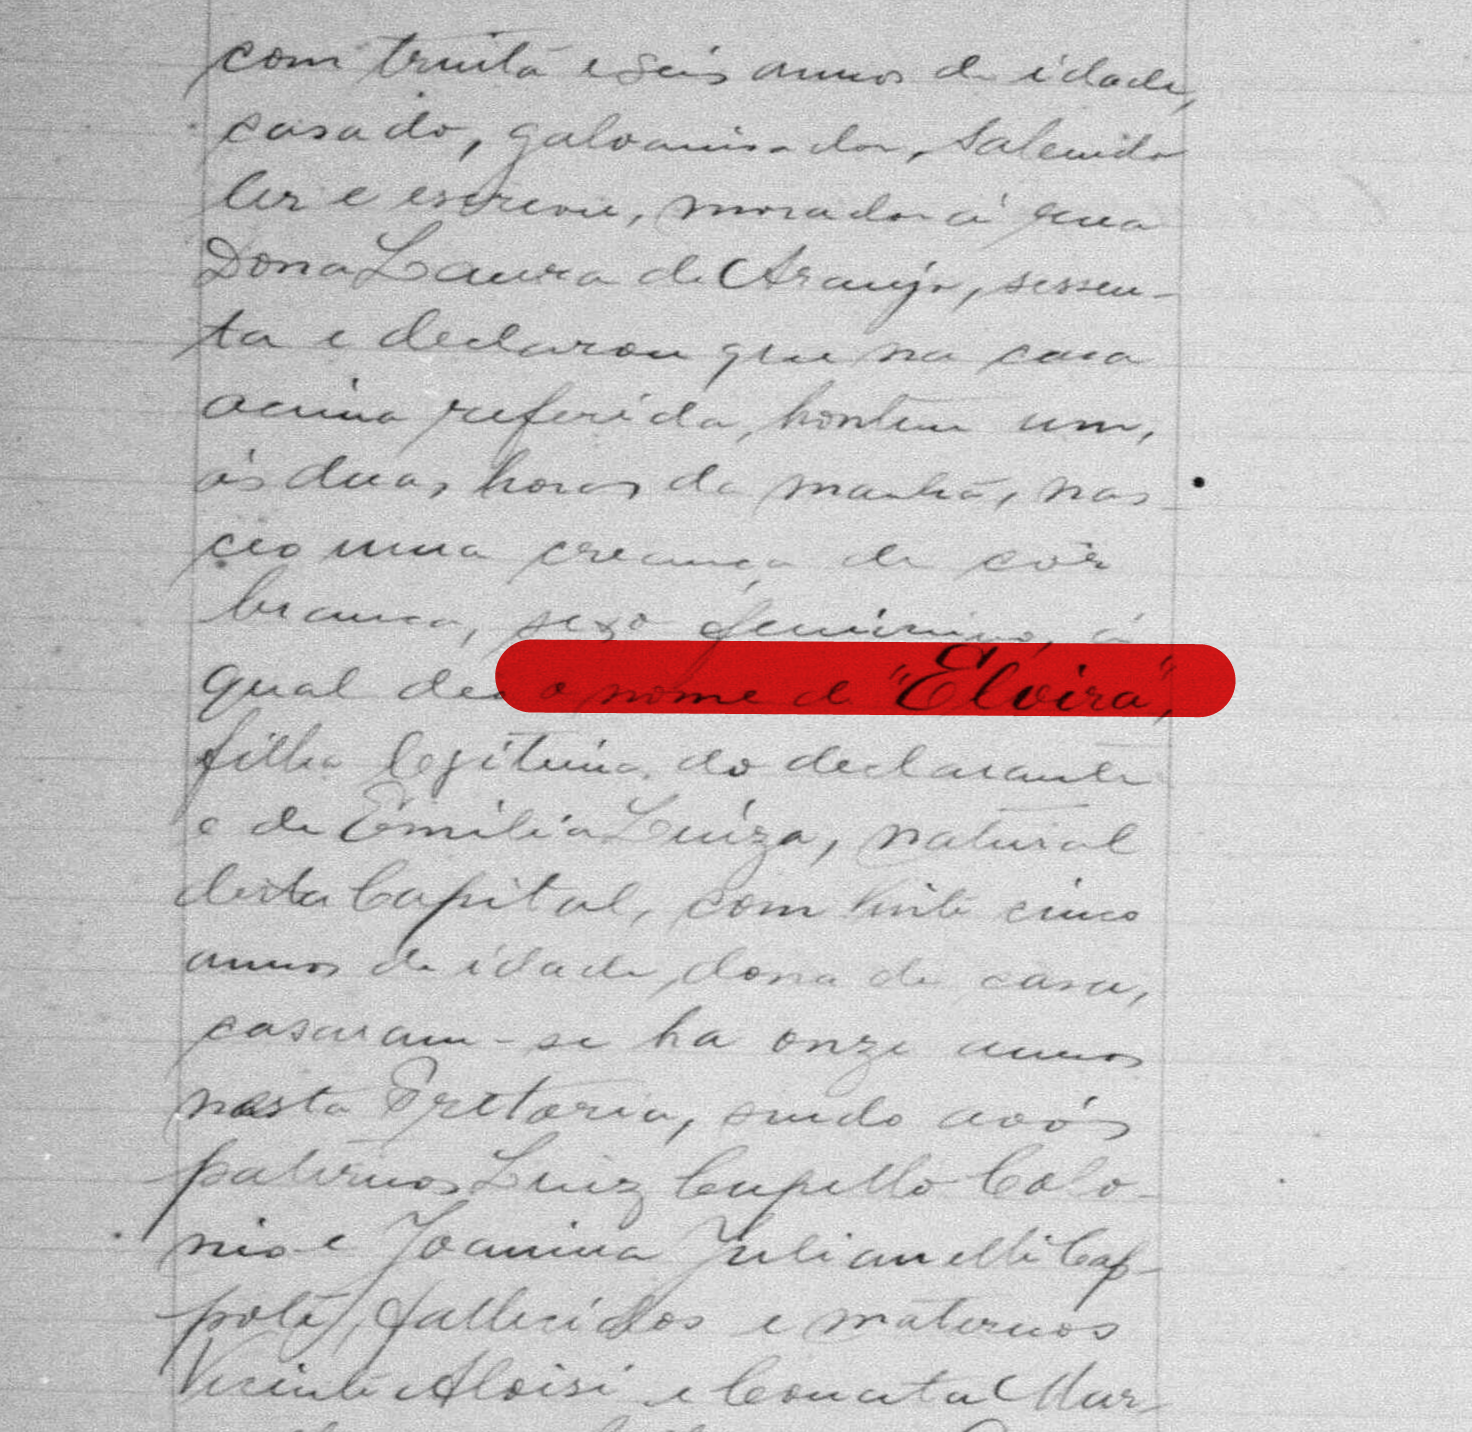 com trinta e seis annos de idade,
casado, galvanisador, sabendo
ler e escrever, morador á rua
Dona Laura de Araujo, sessen-
ta e declarou que na casa
acima referida, hontem um,
ás duas horas da manhã, nas-
ceo uma creança de côr
branca, sexo feminino, á
qual deu o nome de "Elvira",
filha legitima do declarante
e de Emilia Luiza, natural
desta Capital, com vinte cinco
annos de idade, dona de casa,
casaram-se ha onze annos
nesta Pretoria, sendo avós
paternos Luiz Cupello Colo-
nio e Joanina Julianelli Cap-
, fallecidos e maternos
Vicente Aloisi e Concata Mar-